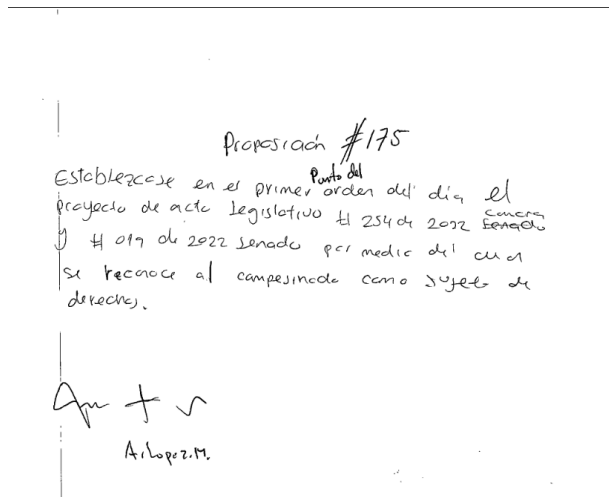 Proposición #175
Establezcase en el primer Punto del orden del día el
proyecto de acto legislativo # 254 de 2022 Camara Senado
y # 019 de 2022 Senado por medio del cual
se reconoce al campesinado como sujeto de
derechos.
A. Lopez. M.